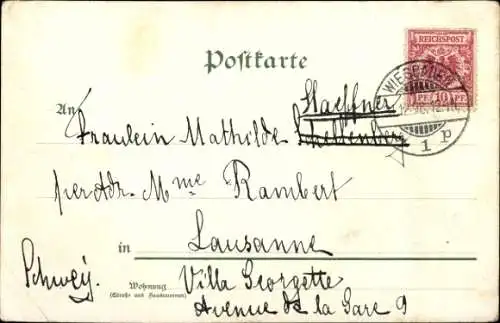 REICHSPOST
10 PF. 10 PF.
WIESBADEN
1 P
Postkarte
Haeffner
An Fräulein Mathilde Schellenberg
per Adr. Mme Rambert
in Lausanne
Schweiz.
Wohnung
(Straße und Hausnummer)
Villa Georgette
Avenue de la Gare 9